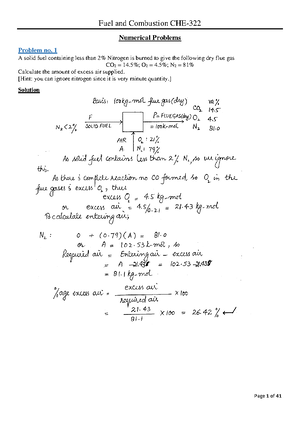 Fuel and Combustion CHE-322
Numerical Problems
Problem no. 1
A solid fuel containing less than 2% Nitrogen is burned to give the following dry flue gas
CO₂ = 14.5%; O₂ = 4.5%; N₂ = 81%
Calculate the amount of excess air supplied.
[Hint: you can ignore nitrogen since it is very minute quantity.]
Solution
Basis: 100kg-mol flue gas (dry)
CO₂ 14.5
F
P = FLUE GAS (dry)
O₂ 4.5
N₂<2%
SOLID FUEL
= 100k-mol
N₂ 81.0
AIR O₂: 21%
A N₂: 79%
As solid fuel contains less than 2% N₂, so we ignore
this.
As there is complete reaction no CO formed so O₂ in the
flue gases is excess O₂, thus
excess O₂ = 4.5 kg-mol
or excess air = 4.5/0.21 = 21.43 kg-mol
To calculate entering air;
N₂: 0 + (0.79)(A) = 81.0
or A = 102.53 k-mol, so
Required air = Entering air - excess air
= A - 21.43 = 102.53 - 21.43
= 81.1 kg-mol
%age excess air = excess air / required air × 100
= 21.43 / 81.1 × 100 = 26.42 %
Page 1 of 41